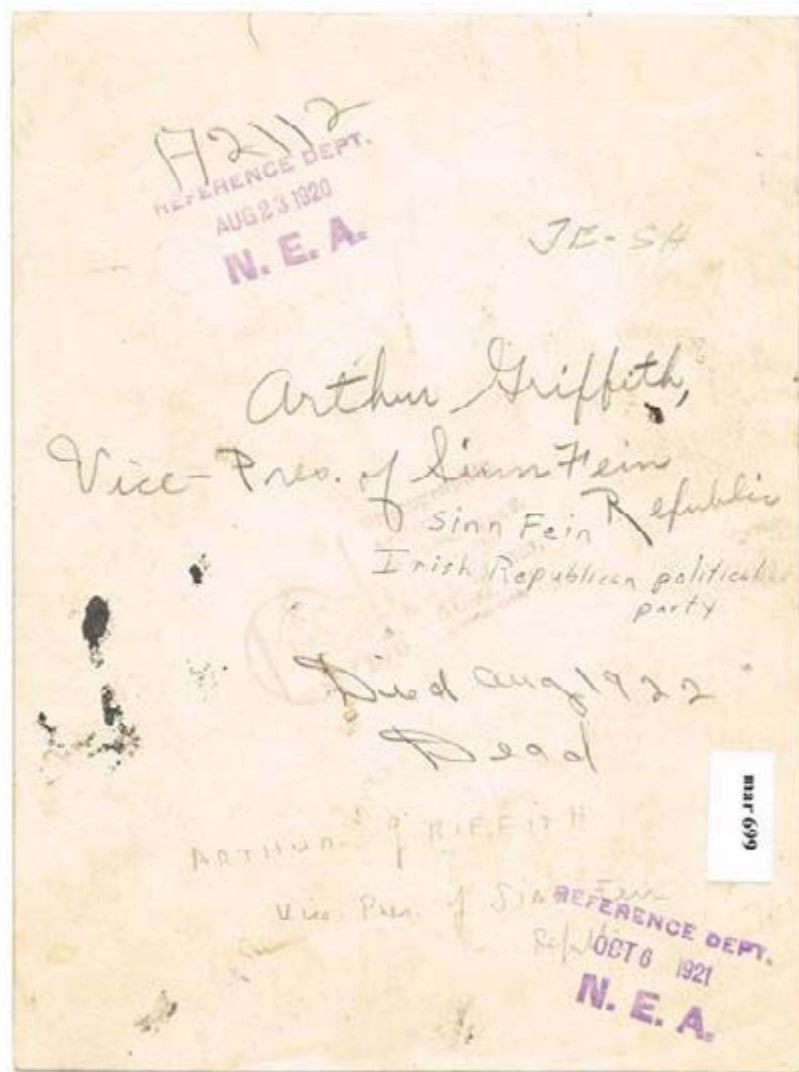 A2112
REFERENCE DEPT.
AUG 23 1920
N. E. A.
JE-SH
Arthur Griffith,
Vice-Pres. of Sinn Fein
Republic
Sinn Fein
Irish Republican political
party
Died Aug 1922
Dead
mar 699
ARTHUR GRIFFITH
Vice. Pres. of Sinn Fein
REFERENCE DEPT.
OCT 6 1921
N. E. A.